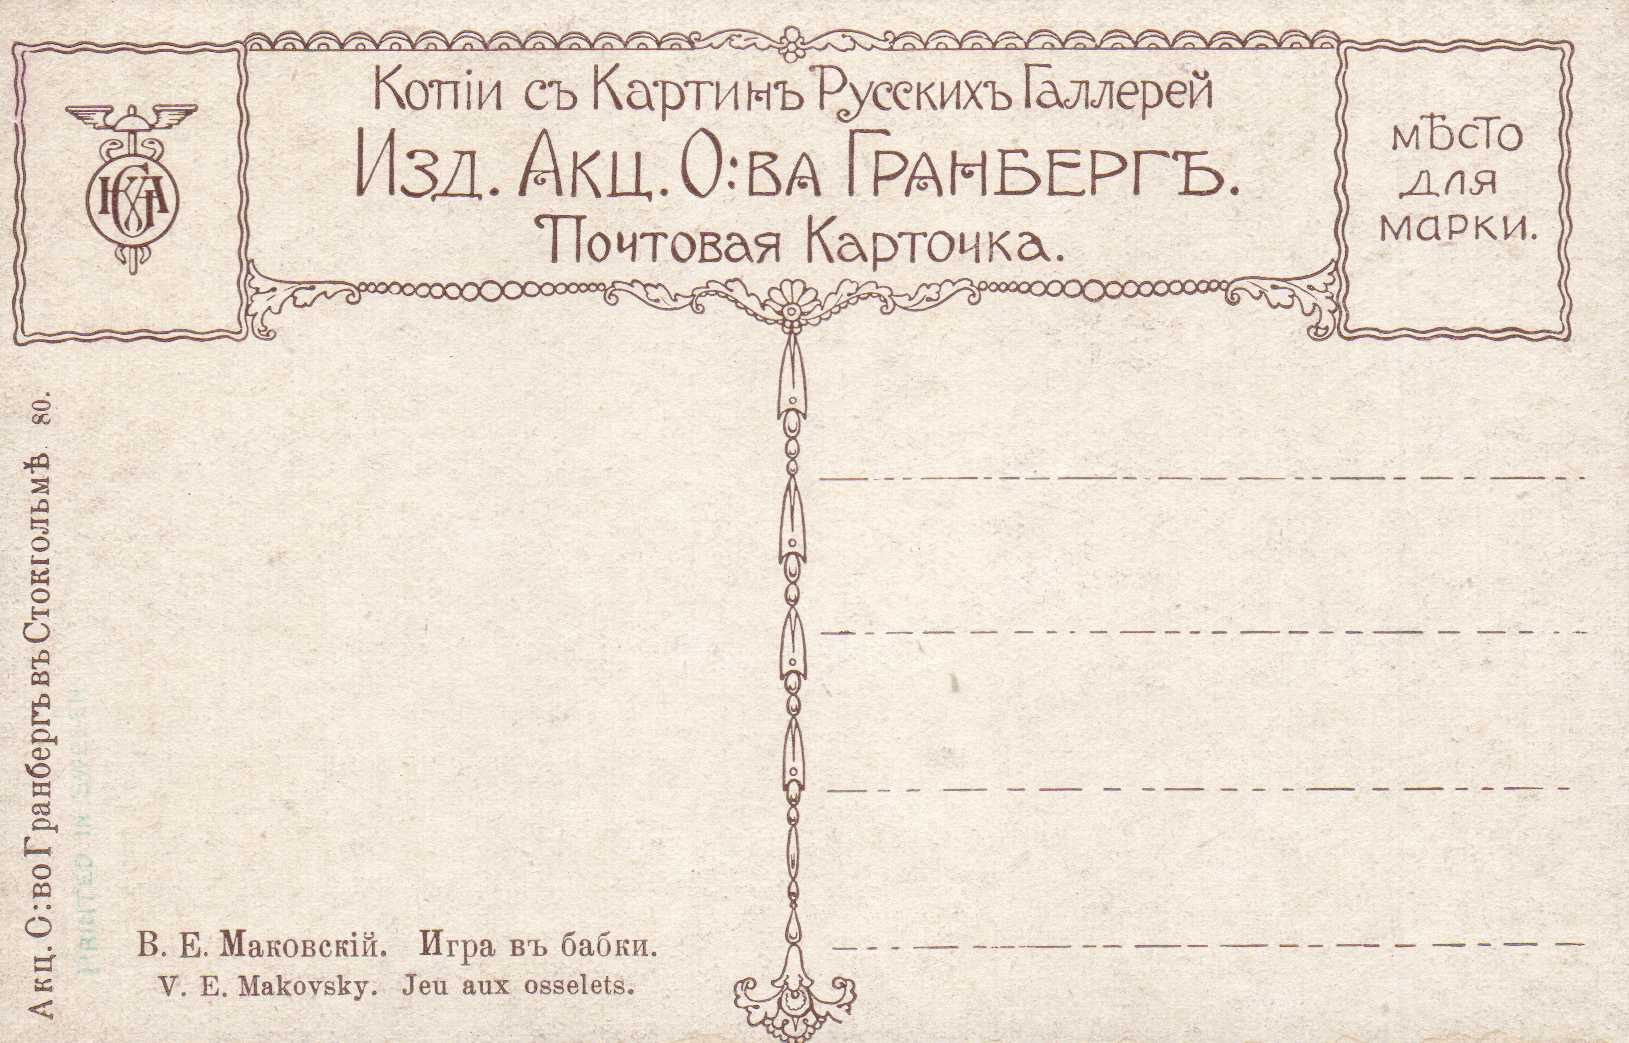 Копіи съ Картинъ Русскихъ Галлерей
Изд. Акц. О:ва Гранбергъ.
Почтовая Карточка.
мѣсто
для
марки.
Акц. О:во Гранбергъ въ Стокгольмѣ 80.
PRINTED IN SWEDEN
В. Е. Маковскій. Игра въ бабки.
V. E. Makovsky. Jeu aux osselets.